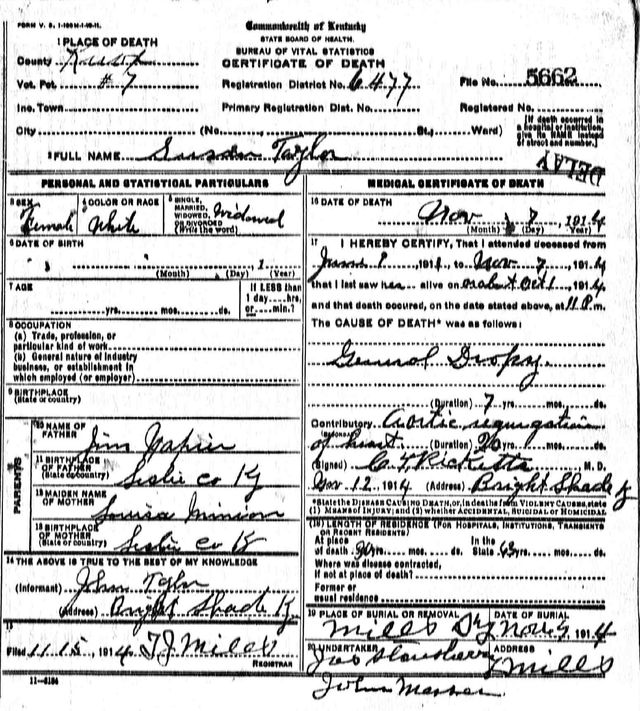 FORM V. S. 1-
Commonwealth of Kentucky
STATE BOARD OF HEALTH.
BUREAU OF VITAL STATISTICS
CERTIFICATE OF DEATH
1 PLACE OF DEATH
County
Vot. Pct. #7
Inc. Town
City (No. St., Ward)
Registration District No. 6477
Primary Registration Dist. No.
File No. 5662
Registered No.
[If death occurred in a hospital or institution, give its NAME instead of street and number.]
2 FULL NAME Susan Taylor
DELAY
PERSONAL AND STATISTICAL PARTICULARS
3 SEX Female
4 COLOR OR RACE White
5 SINGLE, MARRIED, WIDOWED, OR DIVORCED (Write the word) Widowed
6 DATE OF BIRTH
, 1
(Month) (Day) (Year)
7 AGE
yrs. mos. ds.
If LESS than 1 day....hrs, or....min.?
8 OCCUPATION
(a) Trade, profession, or
particular kind of work
(b) General nature of industry
business, or establishment in
which employed (or employer)
9 BIRTHPLACE
(State or country)
PARENTS
10 NAME OF FATHER Jim Napier
11 BIRTHPLACE OF FATHER (State or country) Leslie co Ky
12 MAIDEN NAME OF MOTHER Louisa Minion
13 BIRTHPLACE OF MOTHER (State or country) Leslie co K
14 THE ABOVE IS TRUE TO THE BEST OF MY KNOWLEDGE
(Informant) John Tylor
(Address) Bright Shade K
15
Filed 11-15, 1914 T J Mills
REGISTRAR
11-
MEDICAL CERTIFICATE OF DEATH
16 DATE OF DEATH
Nov 7, 1914
(Month) (Day) (Year)
17 I HEREBY CERTIFY, That I attended deceased from
June 1, 191, to Nov 7, 1914
that I last saw her alive on about Oct 1, 1914
and that death occured, on the date stated above, at 11 P.m.
The CAUSE OF DEATH* was as follows:
General Dropsy
(Duration) 7 yrs. mos. ds.
Contributory Aortic regurgitation
of heart (Duration) 20 yrs. mos. ds.
(Signed) C Y Ricketts M. D.
Nov. 12, 1914 (Address) Bright Shade Ky
*State the DISEASE CAUSING DEATH, or, in deaths from VIOLENT CAUSES, state
(1) MEANS of INJURY; and (2) whether ACCIDENTAL, SUICIDAL or HOMICIDAL
(18) LENGTH OF RESIDENCE (FOR HOSPITALS, INSTITUTIONS, TRANSIENTS
OR RECENT RESIDENTS)
At place of death yrs. mos. ds. In the State yrs. mos. ds.
Where was disease contracted,
If not at place of death?
Former or
usual residence
19 PLACE OF BURIAL OR REMOVAL Mills
DATE OF BURIAL Nov 9, 1914
20 UNDERTAKER
ADDRESS Mills
John